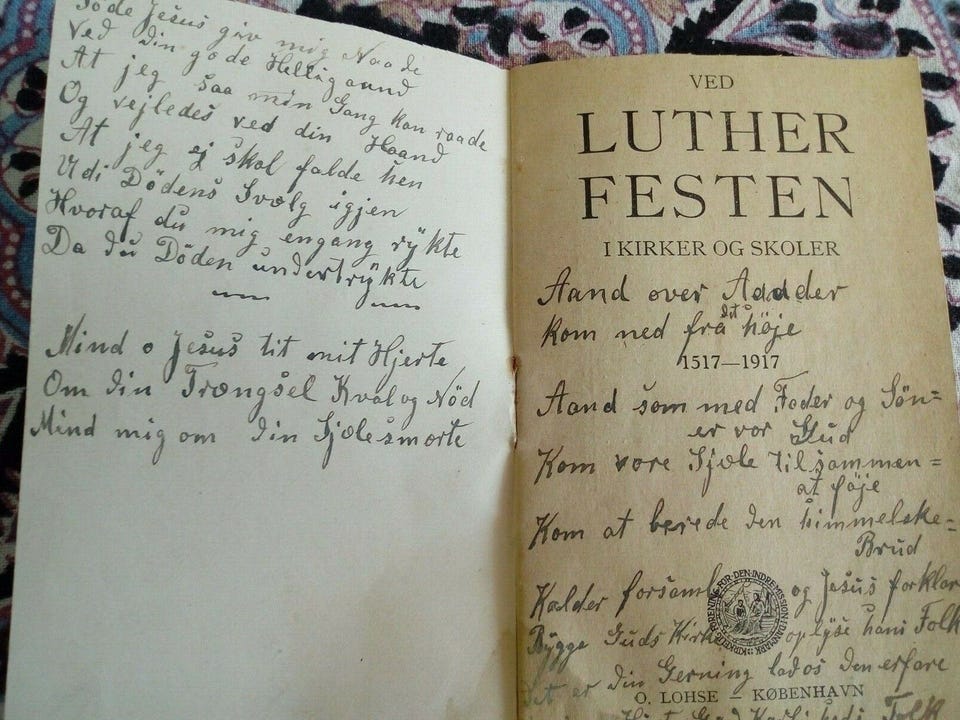 Söde Jesus giv mig Naade
Ved din gode Helligaand
At jeg saa min Gang kan raade
Og vejledes ved din Haand
At jeg ej skal falde hen
Udi Dödens Svælg igjen
Hvoraf du mig engang rÿkte
Da du Döden undertrÿkte
Mind o Jesus tit mit Hjerte
Om din Trængsel Kval og Nöd
Mind mig om din Sjælesmerte
VED
LUTHER
FESTEN
I KIRKER OG SKOLER
Aand over Aander
kom ned fra det höje
1517—1917
Aand som med Fader og Sön=
er vor Gud
Kom vore Sjæle til sammen=
at föje
Kom at berede den himmelske=
Brud
Kalder forsaml og Jesus forklar
KIRKELIG FORENING FOR DEN INDRE MISSION I DANMARK
Bÿgge Guds Kirke oplÿse hans Folk
Det er din Gerning lad os den erfare
O. LOHSE – KØBENHAVN
Folk